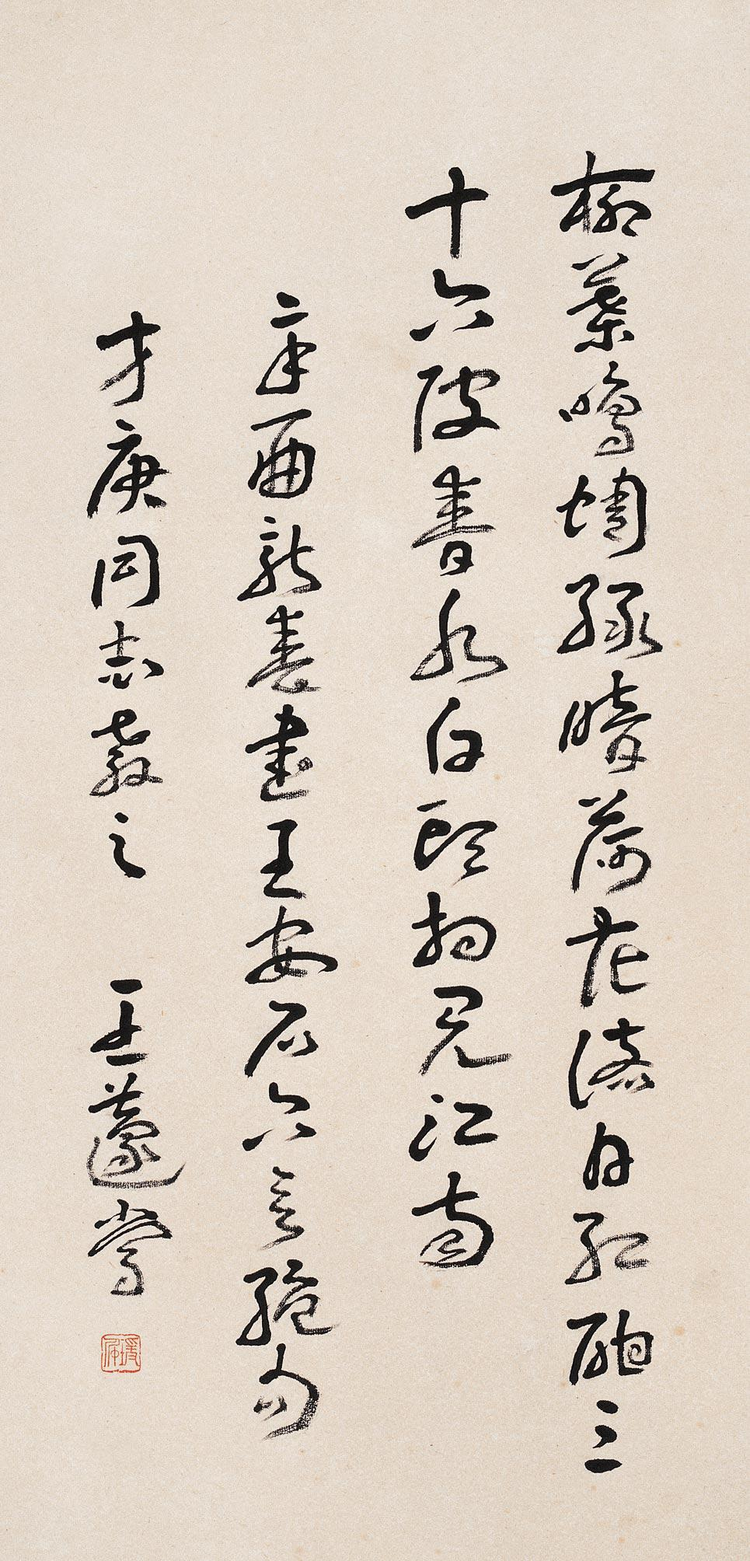 柳葉鳴蜩綠暗荷花落日紅酣三
十六陂春水白頭相見江南
辛酉新春書王安石六言絕句
才庚同志教之 王蘧常